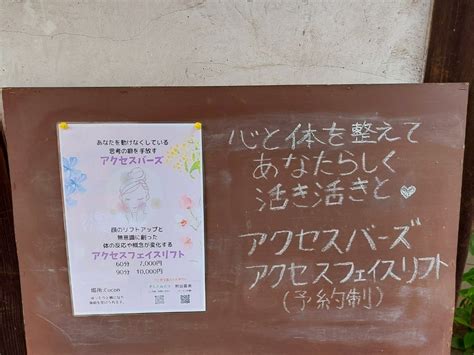 あなたを動けなくしている
思考の癖を手放す
アクセスバーズ
顔のリフトアップと
無意識に創った
体の反応や概念が変化する
アクセスフェイスリフト
60分 7,000円
90分 10,000円
心と体を整えて
あなたらしく
活き活きと♡
アクセスバーズ
アクセスフェイスリフト
(予約制)